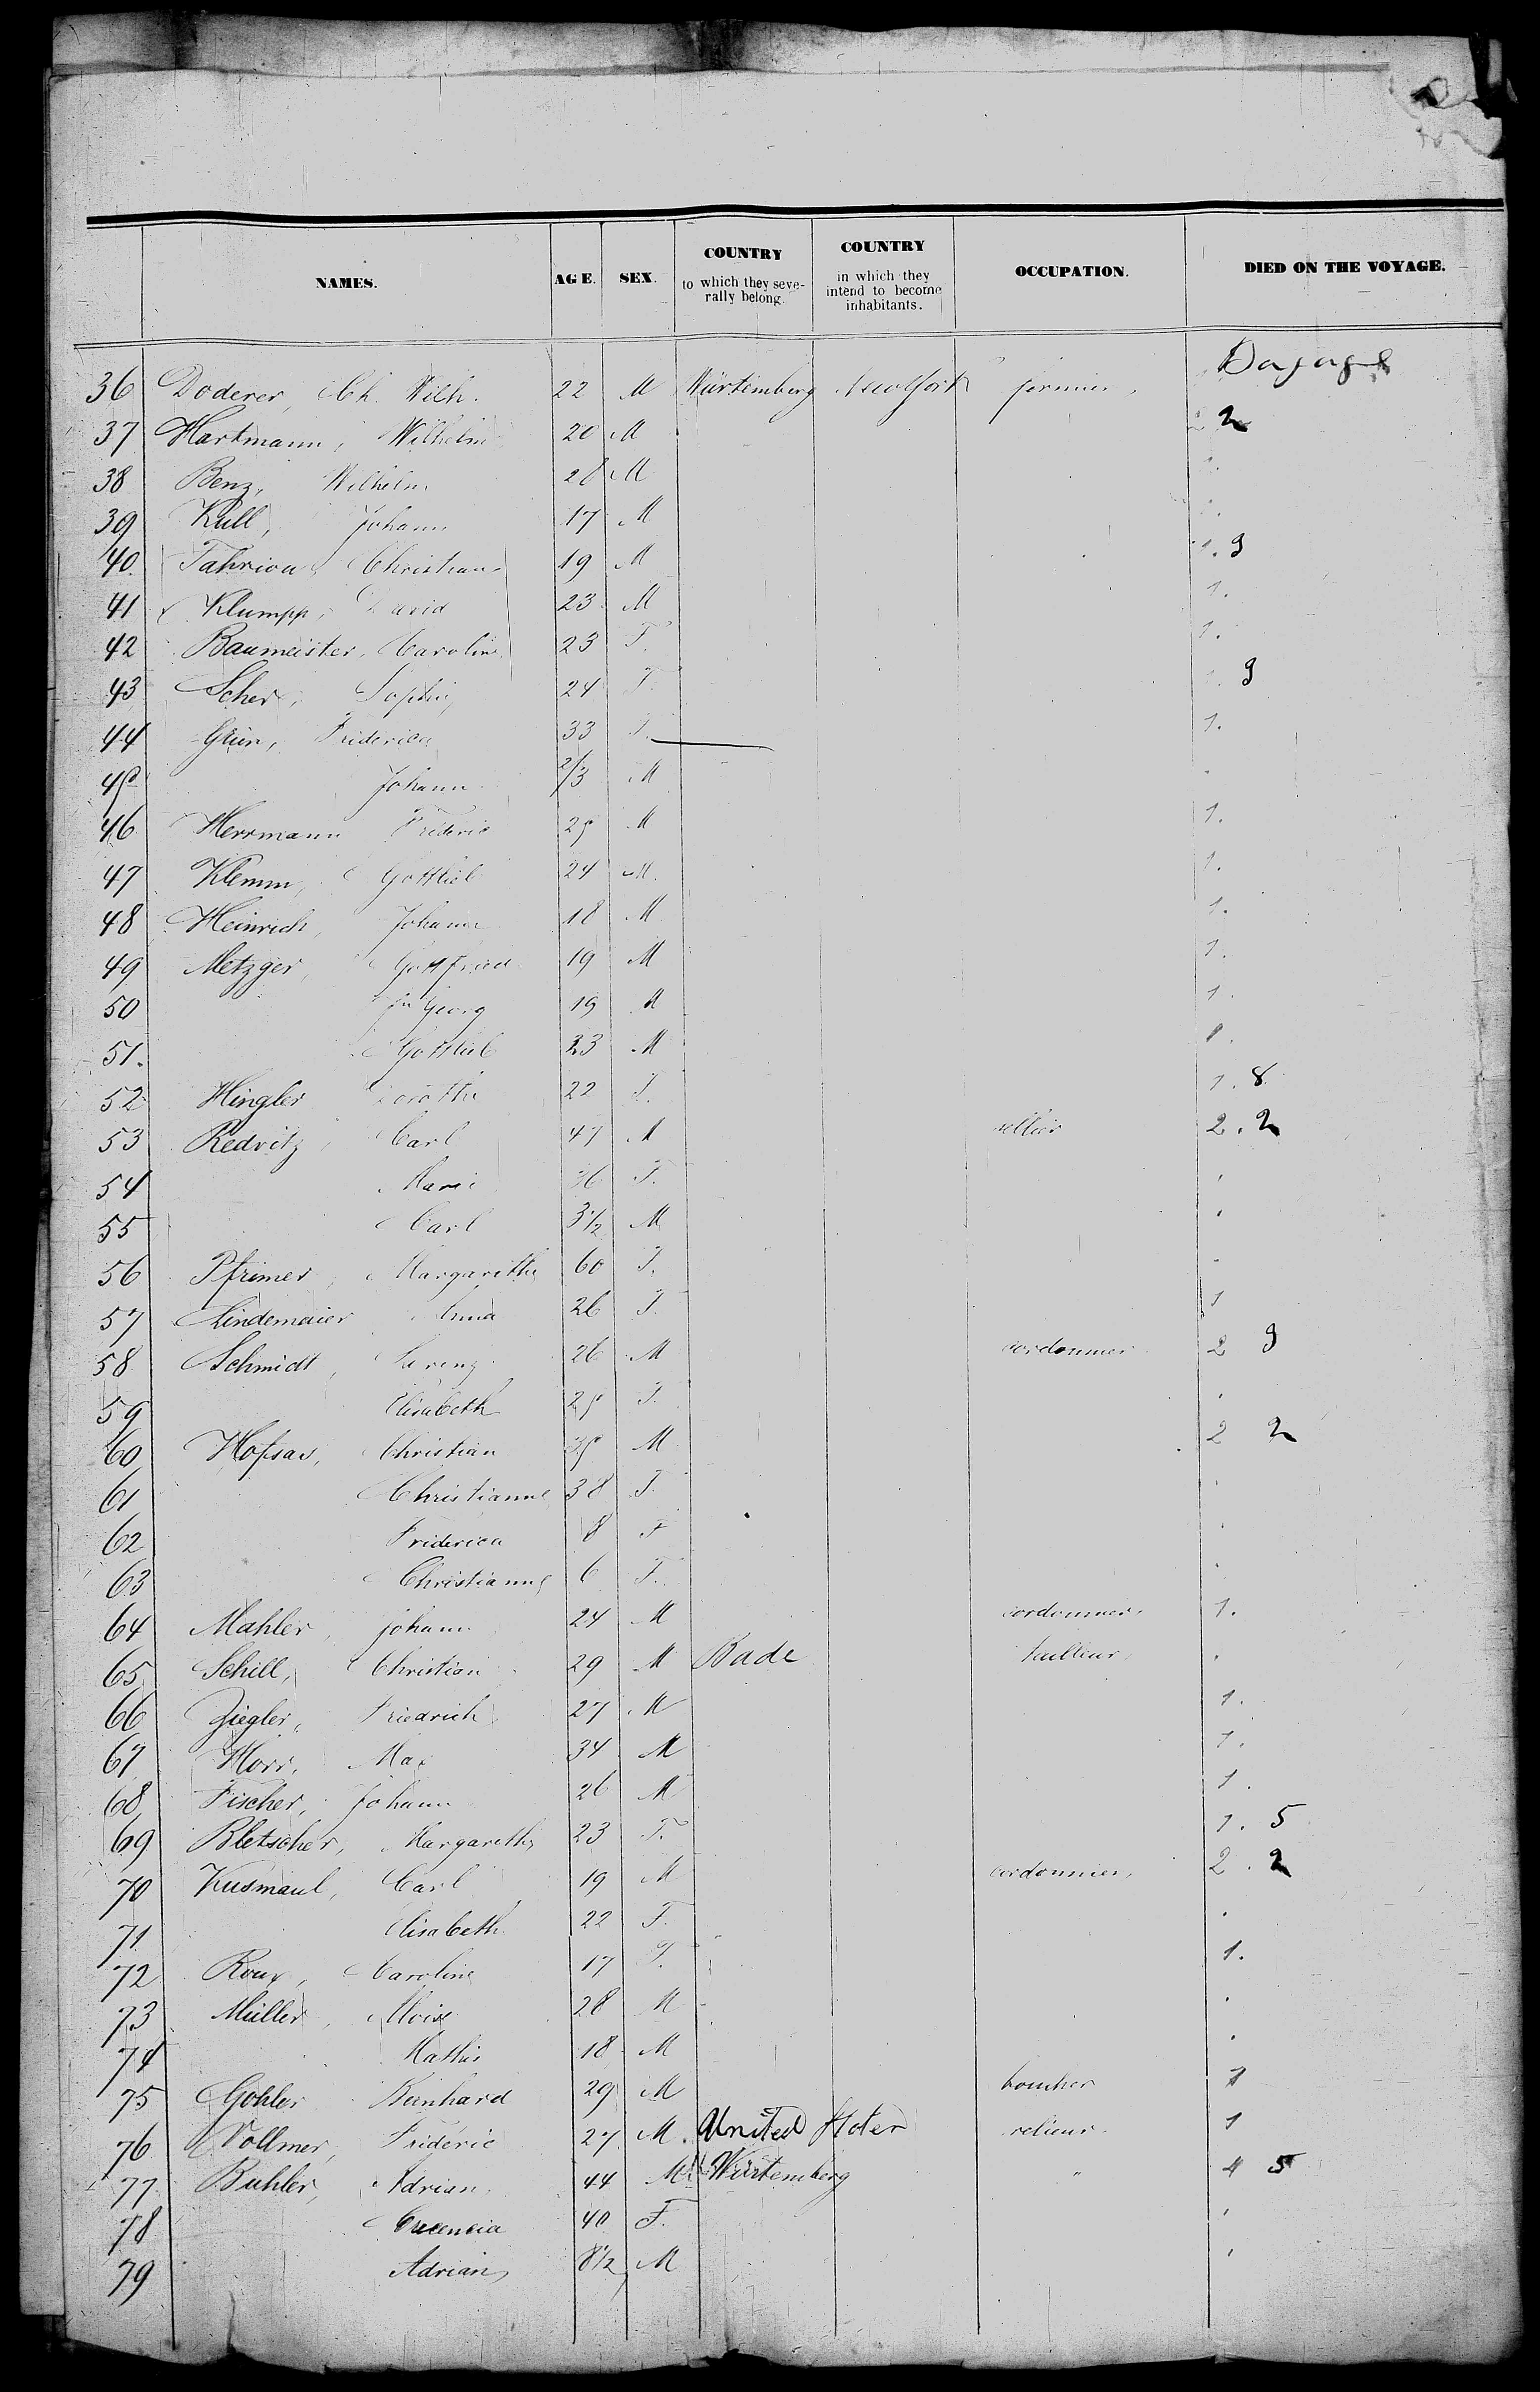 NAMES. AGE. SEX. COUNTRY to which they seve-rally belong. COUNTRY in which they intend to become inhabitants. OCCUPATION. DIED ON THE VOYAGE.
Bagage
36 Doderer, Ch. Wilh. 22 M Würtemberg New York
37 Hartmann, Wilhelm 20 M 2
38 Benz, Wilhelm 28 M 1.
39 Kull, Johann 17 M
40. Fahrion, Christian 19 M 1. 3
41 Klumpp, David 23 M 1.
42 Baumeister, Caroline 23 F. 1.
43 Scher, Sophie 24 F. 3
44 Grün, Friderica 33 F. 1.
45 Johann 2/3 M
46 Herrmann Frideric 25 M 1.
47 Klemm, Gottlieb 24 M. 1.
48 Heinrich, Johann 18 M 1.
49 Metzger, Gottfried 19 M 1.
50 Georg 19 M 1.
51. Gottlieb 23 M 1.
52 Hingler 22 F. 1. 8
53 Redvitz, Carl 47 M sellier 2. 2
54 Marie 36 F.
55 Carl 3 1/2 M
56 Pfrimer, Margaretha 60 F.
57 Lindemaier Anna 26 F. 1
58 Schmidt, 26 M cordonnier 2 3
59 Elisabeth 25 F.
60 Hofsas, Christian 35 M 2 2
61 Christianne 38 F.
62 Friderica 8 F
63 Christianne 6 F.
64 Mahler, Johann 24 M cordonnier 1.
65 Schill, Christian 29 M Bade tailleur
66 Ziegler, Friedrich 27 M 1.
67 Horr, Max 34 M 1.
68 Fischer, Johann 26 M 1.
69 Bletscher, Margaretha 23 F. 1. 5
70 Kusmaul, Carl 19 M cordonnier, 2. 2
71 Elisabeth 22 F.
72 Roux, Caroline 17 F. 1.
73 Müller, Aloise 28 M
74 Mathis 18 M
75 Gohler Bernhard 29 M boucher 1
76 Vollmer, Frideric 27 M. United States relieur 1
77 Buhler, Adrian 44 M Würtemberg " 4 5
78 Crecencia 40 F.
79 Adrian 8 1/2 M